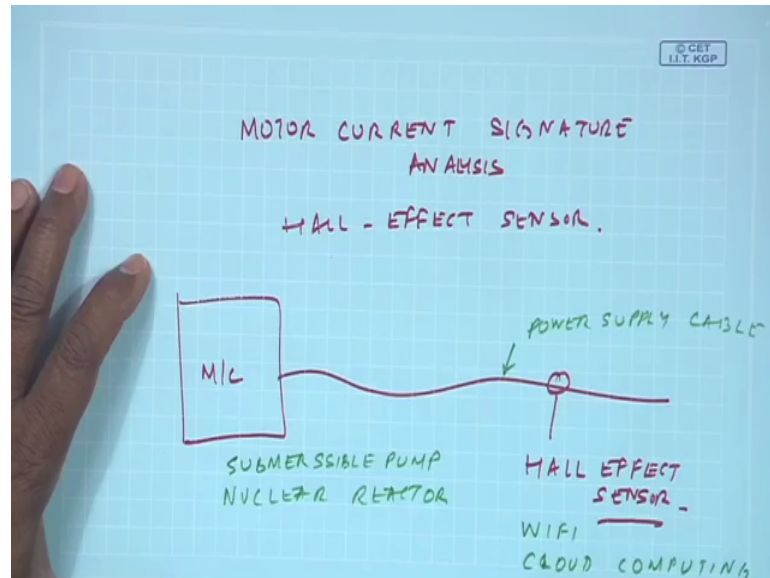 © CET
I.I.T. KGP
MOTOR CURRENT SIGNATURE
ANALYSIS
HALL - EFFECT SENSOR.
POWER SUPPLY CABLE
M/C
SUBMERSSIBLE PUMP
NUCLEAR REACTOR
HALL EFFECT
SENSOR
WIFI
CLOUD COMPUTING